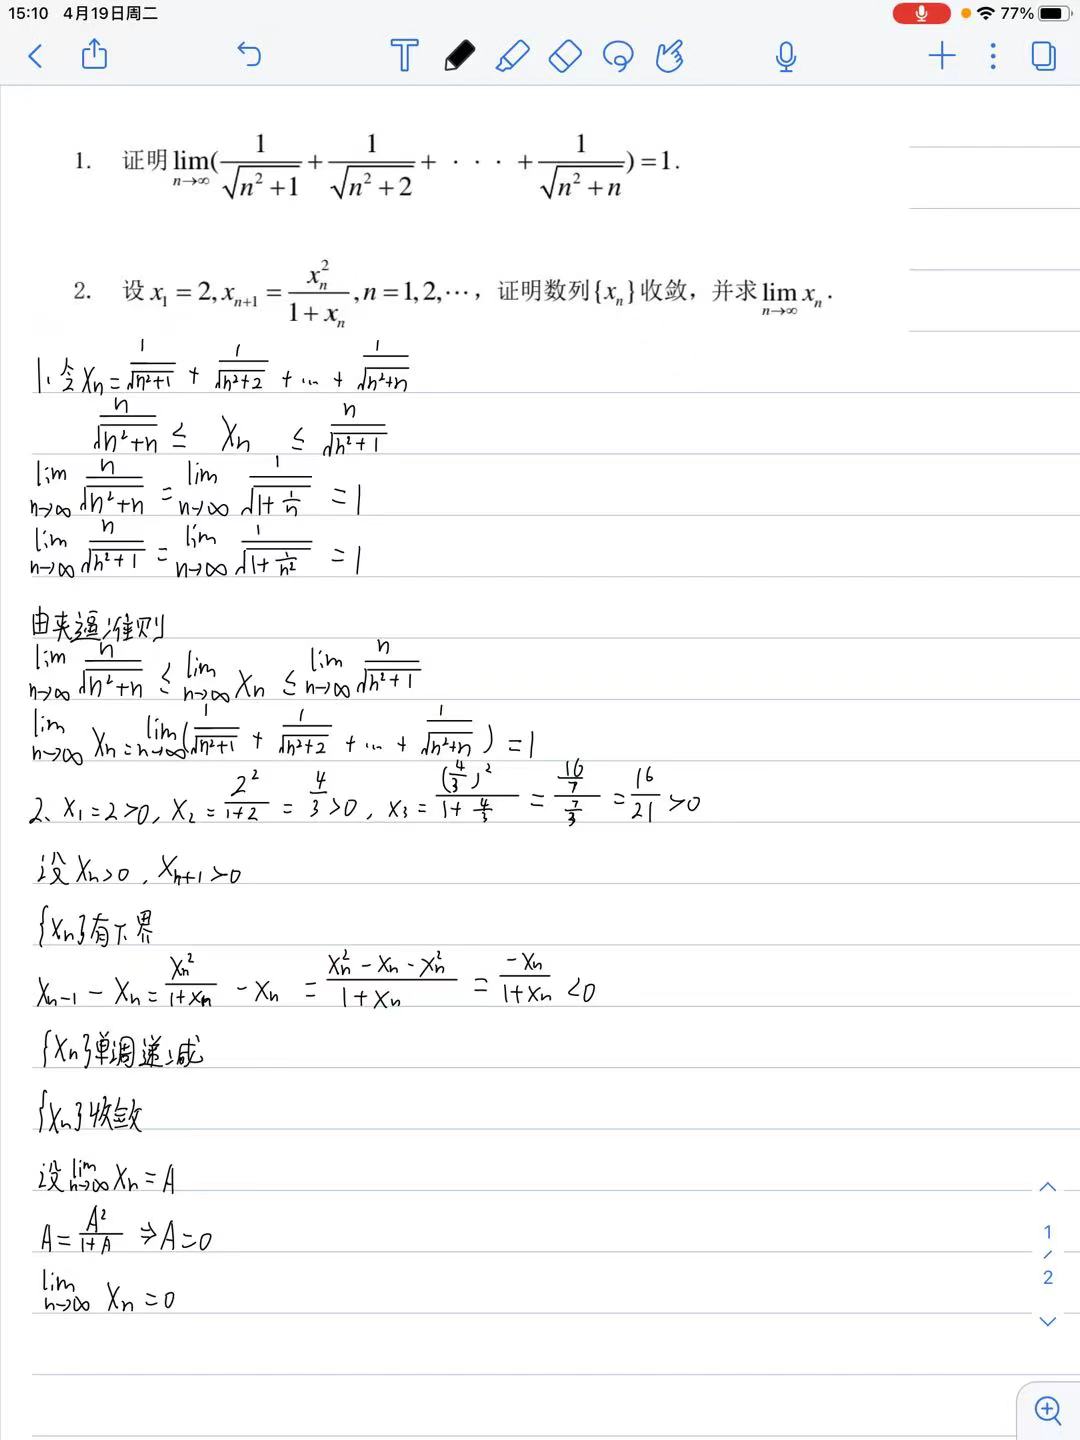 15:10 4月19日周二 77%
1. 证明 lim_{n→∞}(1/√(n²+1) + 1/√(n²+2) + · · · + 1/√(n²+n)) = 1.
2. 设 x₁ = 2, x_{n+1} = x_n²/(1+x_n), n = 1, 2, ⋯, 证明数列{x_n}收敛, 并求 lim_{n→∞} x_n.
1. 令 X_n = 1/√(n²+1) + 1/√(n²+2) + … + 1/√(n²+n)
n/√(n²+n) ≤ X_n ≤ n/√(n²+1)
lim_{n→∞} n/√(n²+n) = lim_{n→∞} 1/√(1+1/n) = 1
lim_{n→∞} n/√(n²+1) = lim_{n→∞} 1/√(1+1/n²) = 1
由夹逼准则
lim_{n→∞} n/√(n²+n) ≤ lim_{n→∞} X_n ≤ lim_{n→∞} n/√(n²+1)
lim_{n→∞} X_n = lim_{n→∞}(1/√(n²+1) + 1/√(n²+2) + … + 1/√(n²+n)) = 1
2、X₁ = 2 > 0, X₂ = 2²/(1+2) = 4/3 > 0, X₃ = (4/3)²/(1+4/3) = (16/7)/(7/3) = 16/21 > 0
设 X_n > 0, X_{n+1} > 0
{X_n}有下界
X_{n-1} - X_n = X_n²/(1+X_n) - X_n = (X_n² - X_n - X_n²)/(1+X_n) = -X_n/(1+X_n) < 0
{X_n}单调递减
{X_n}收敛
设 lim_{n→∞} X_n = A
A = A²/(1+A) ⇒ A = 0
lim_{n→∞} X_n = 0
1
/
2